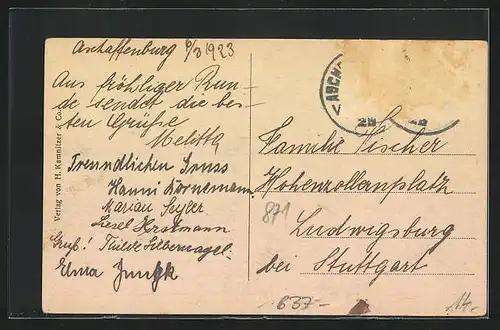 Aschaffenburg 6/3 1923
Aus fröhliger Run-
de sendet die bes-
ten Grüße
Melitta
Freundlichen Gruss
Hanni Kornemann
Marian Seyler
Liesel Horstmann
Gruß! Tilde Silbernagel.
Elma
Verlag von H. Kämnitzer & Co.
ASCH
Familie Fischer
Hohenzollernplatz
871
Ludwigsburg
bei Stuttgart
637-
14.-